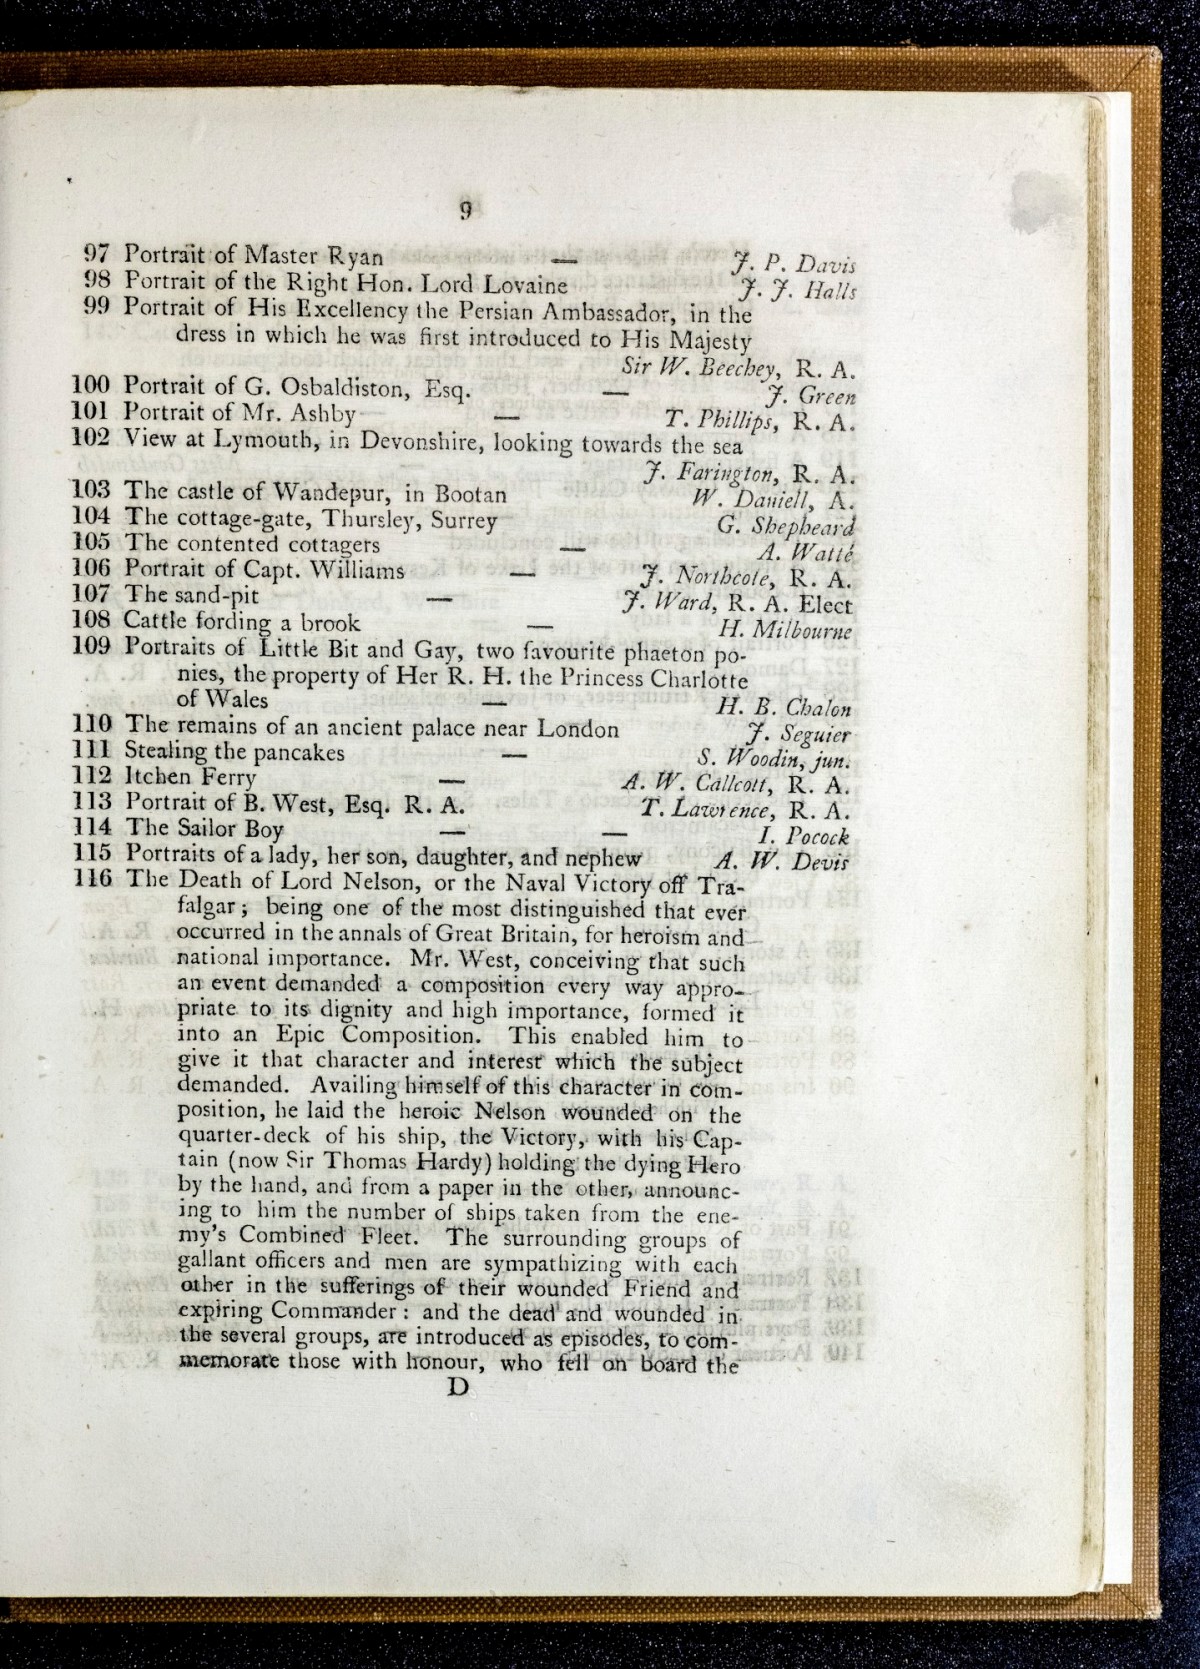 9
97 Portrait of Master Ryan — J. P. Davis
98 Portrait of the Right Hon. Lord Lovaine J. J. Halls
99 Portrait of His Excellency the Persian Ambassador, in the
dress in which he was first introduced to His Majesty
Sir W. Beechey, R. A.
100 Portrait of G. Osbaldiston, Esq. — J. Green
101 Portrait of Mr. Ashby — T. Phillips, R. A.
102 View at Lymouth, in Devonshire, looking towards the sea
J. Farington, R. A.
103 The castle of Wandepur, in Bootan W. Daniell, A.
104 The cottage-gate, Thursley, Surrey G. Shepheard
105 The contented cottagers — A. Watté
106 Portrait of Capt. Williams — J. Northcote, R. A.
107 The sand-pit — J. Ward, R. A. Elect
108 Cattle fording a brook — H. Milbourne
109 Portraits of Little Bit and Gay, two favourite phaeton po-
nies, the property of Her R. H. the Princess Charlotte
of Wales — H. B. Chalon
110 The remains of an ancient palace near London J. Seguier
111 Stealing the pancakes — S. Woodin, jun.
112 Itchen Ferry — A. W. Callcott, R. A.
113 Portrait of B. West, Esq. R. A. T. Lawrence, R. A.
114 The Sailor Boy — — I. Pocock
115 Portraits of a lady, her son, daughter, and nephew A. W. Devis
116 The Death of Lord Nelson, or the Naval Victory off Tra-
falgar; being one of the most distinguished that ever
occurred in the annals of Great Britain, for heroism and
national importance. Mr. West, conceiving that such
an event demanded a composition every way appro-
priate to its dignity and high importance, formed it
into an Epic Composition. This enabled him to
give it that character and interest which the subject
demanded. Availing himself of this character in com-
position, he laid the heroic Nelson wounded on the
quarter-deck of his ship, the Victory, with his Cap-
tain (now Sir Thomas Hardy) holding the dying Hero
by the hand, and from a paper in the other, announc-
ing to him the number of ships taken from the ene-
my's Combined Fleet. The surrounding groups of
gallant officers and men are sympathizing with each
other in the sufferings of their wounded Friend and
expiring Commander: and the dead and wounded in
the several groups, are introduced as episodes, to com-
memorate those with honour, who fell on board the
D